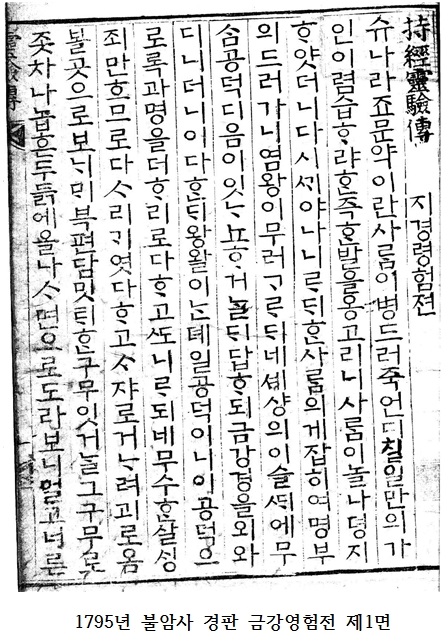 持經靈驗傳 지경령험젼
슈나라죠문약이란사ᄅᆞᆷ이병드러죽언디칠일만의가
인이렴습ᄒᆞ랴ᄒᆞᆫ즉ᄒᆞᆫ발을옹고리니사ᄅᆞᆷ이놀나뎡지
ᄒᆞ얏더니다시ᄭᆡ야나니ᄅᆞ되ᄒᆞᆫ사ᄅᆞᆷ의게잡히여명부
의드러가니염왕이무러ᄀᆞᄅᆞ되네셰샹의이슬ᄯᆡ에무
ᄉᆞᆷ공덕디음이잇ᄂᆞ뇨ᄒᆞ거ᄂᆞᆯᄃᆡ답ᄒᆞ되금강경을외와
디니더니이다ᄒᆞᆫᄃᆡ왕왈이ᄂᆞᆫ뎨일공덕이니이공덕으
로록과명을더ᄒᆞ리로다ᄒᆞ고ᄯᅩ니ᄅᆞ되네무수ᄒᆞᆫ살ᄉᆡᆼ
죄만ᄒᆞ므로다ᄉᆞ리기엿다ᄒᆞ고ᄉᆞ쟈로거ᄂᆞ려괴로옴
볼곳으로보ᄂᆡᄆᆡ북편담밋ᄐᆡᄒᆞᆫ구무잇거ᄂᆞᆯ그구무로
좃차나놉흔두듥에올나ᄉᆞ면으로도라보니멀고너른
靈驗傳
1795년 불암사 경판 금강영험전 제1면